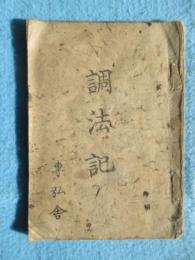 調法記
専弘舎